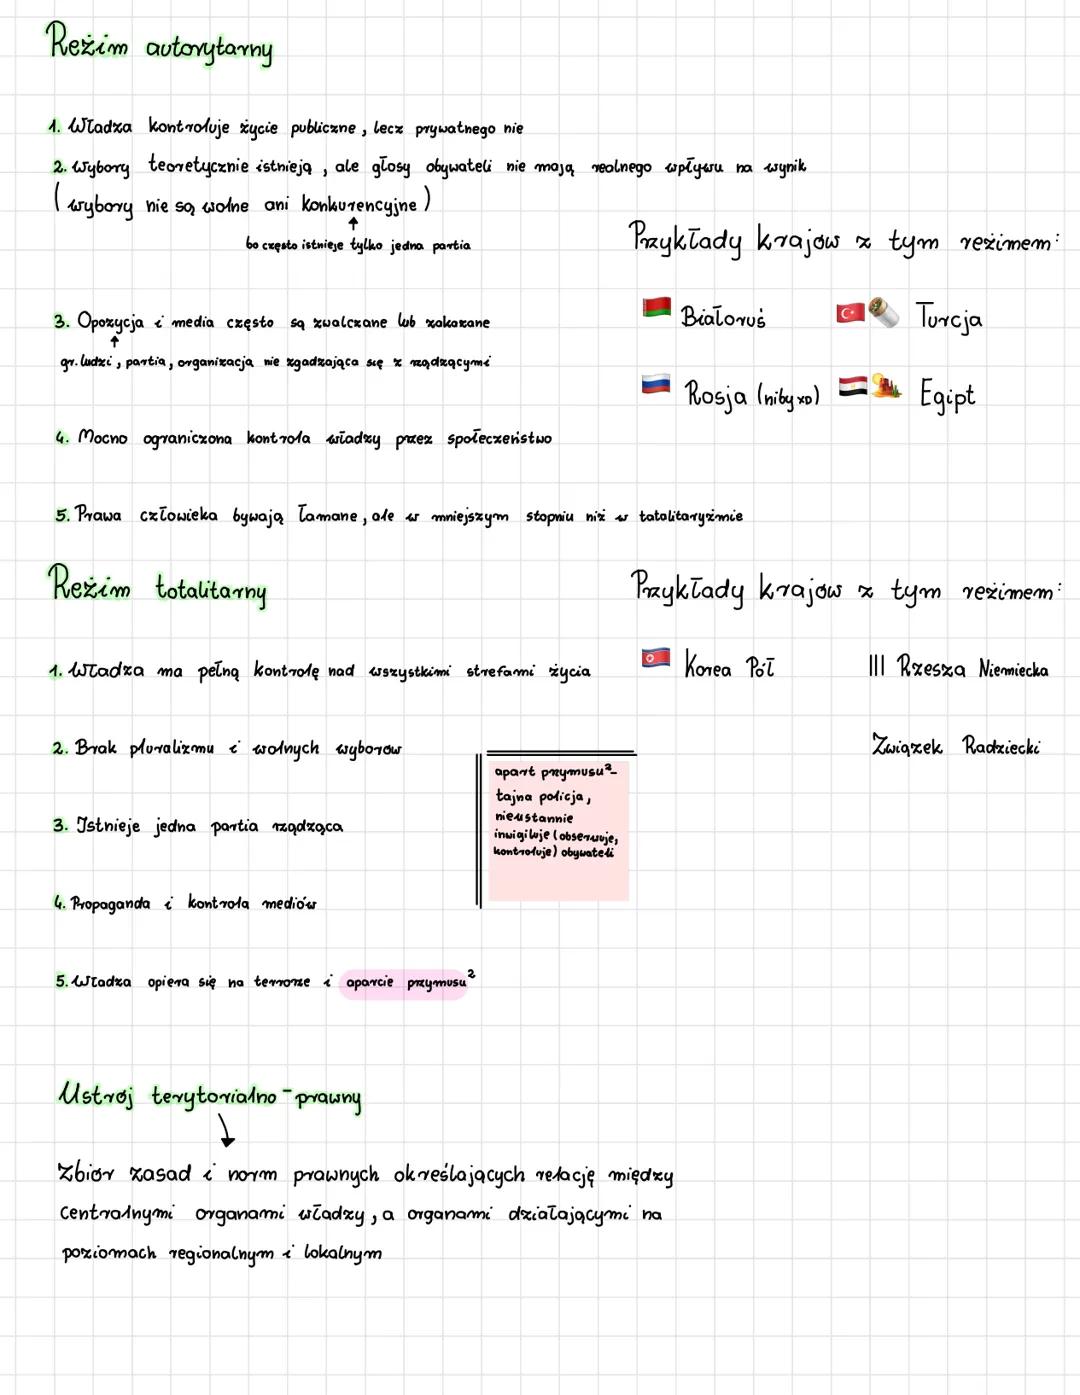 Reżim autorytarny
1. Władza kontroluje życie publiczne, lecz prywatnego nie
2. Wybory teoretycznie istnieją, ale głosy obywateli nie mają realnego wpływu na wynik
(wybory nie są wolne ani konkurencyjne)
bo często istnieje tylko jedna partia
Przykłady krajów z tym reżimem:
Białoruś
Turcja
Rosja (niby xD)
Egipt
3. Opozycja i media często są zwalczane lub zakazane
gr. ludzi, partia, organizacja nie zgadzająca się z rządzącymi
4. Mocno ograniczona kontrola władzy przez społeczeństwo
5. Prawa człowieka bywają łamane, ale w mniejszym stopniu niż w totalitaryzmie
Reżim totalitarny
1. Władza ma pełną kontrolę nad wszystkimi strefami życia
2. Brak pluralizmu i wolnych wyborów
3. Istnieje jedna partia rządząca
4. Propaganda i kontrola mediów
5. Władza opiera się na terrorze i aparcie przymusu²
Przykłady krajów z tym reżimem:
Korea Pół
III Rzesza Niemiecka
Związek Radziecki
apart przymusu²-
tajna policja,
nieustannie
inwigiluje (obserwuje,
kontroluje) obywateli
Ustrój terytorialno-prawny
Zbiór zasad i norm prawnych określających relację między
centralnymi organami władzy, a organami działającymi na
poziomach regionalnym i lokalnym